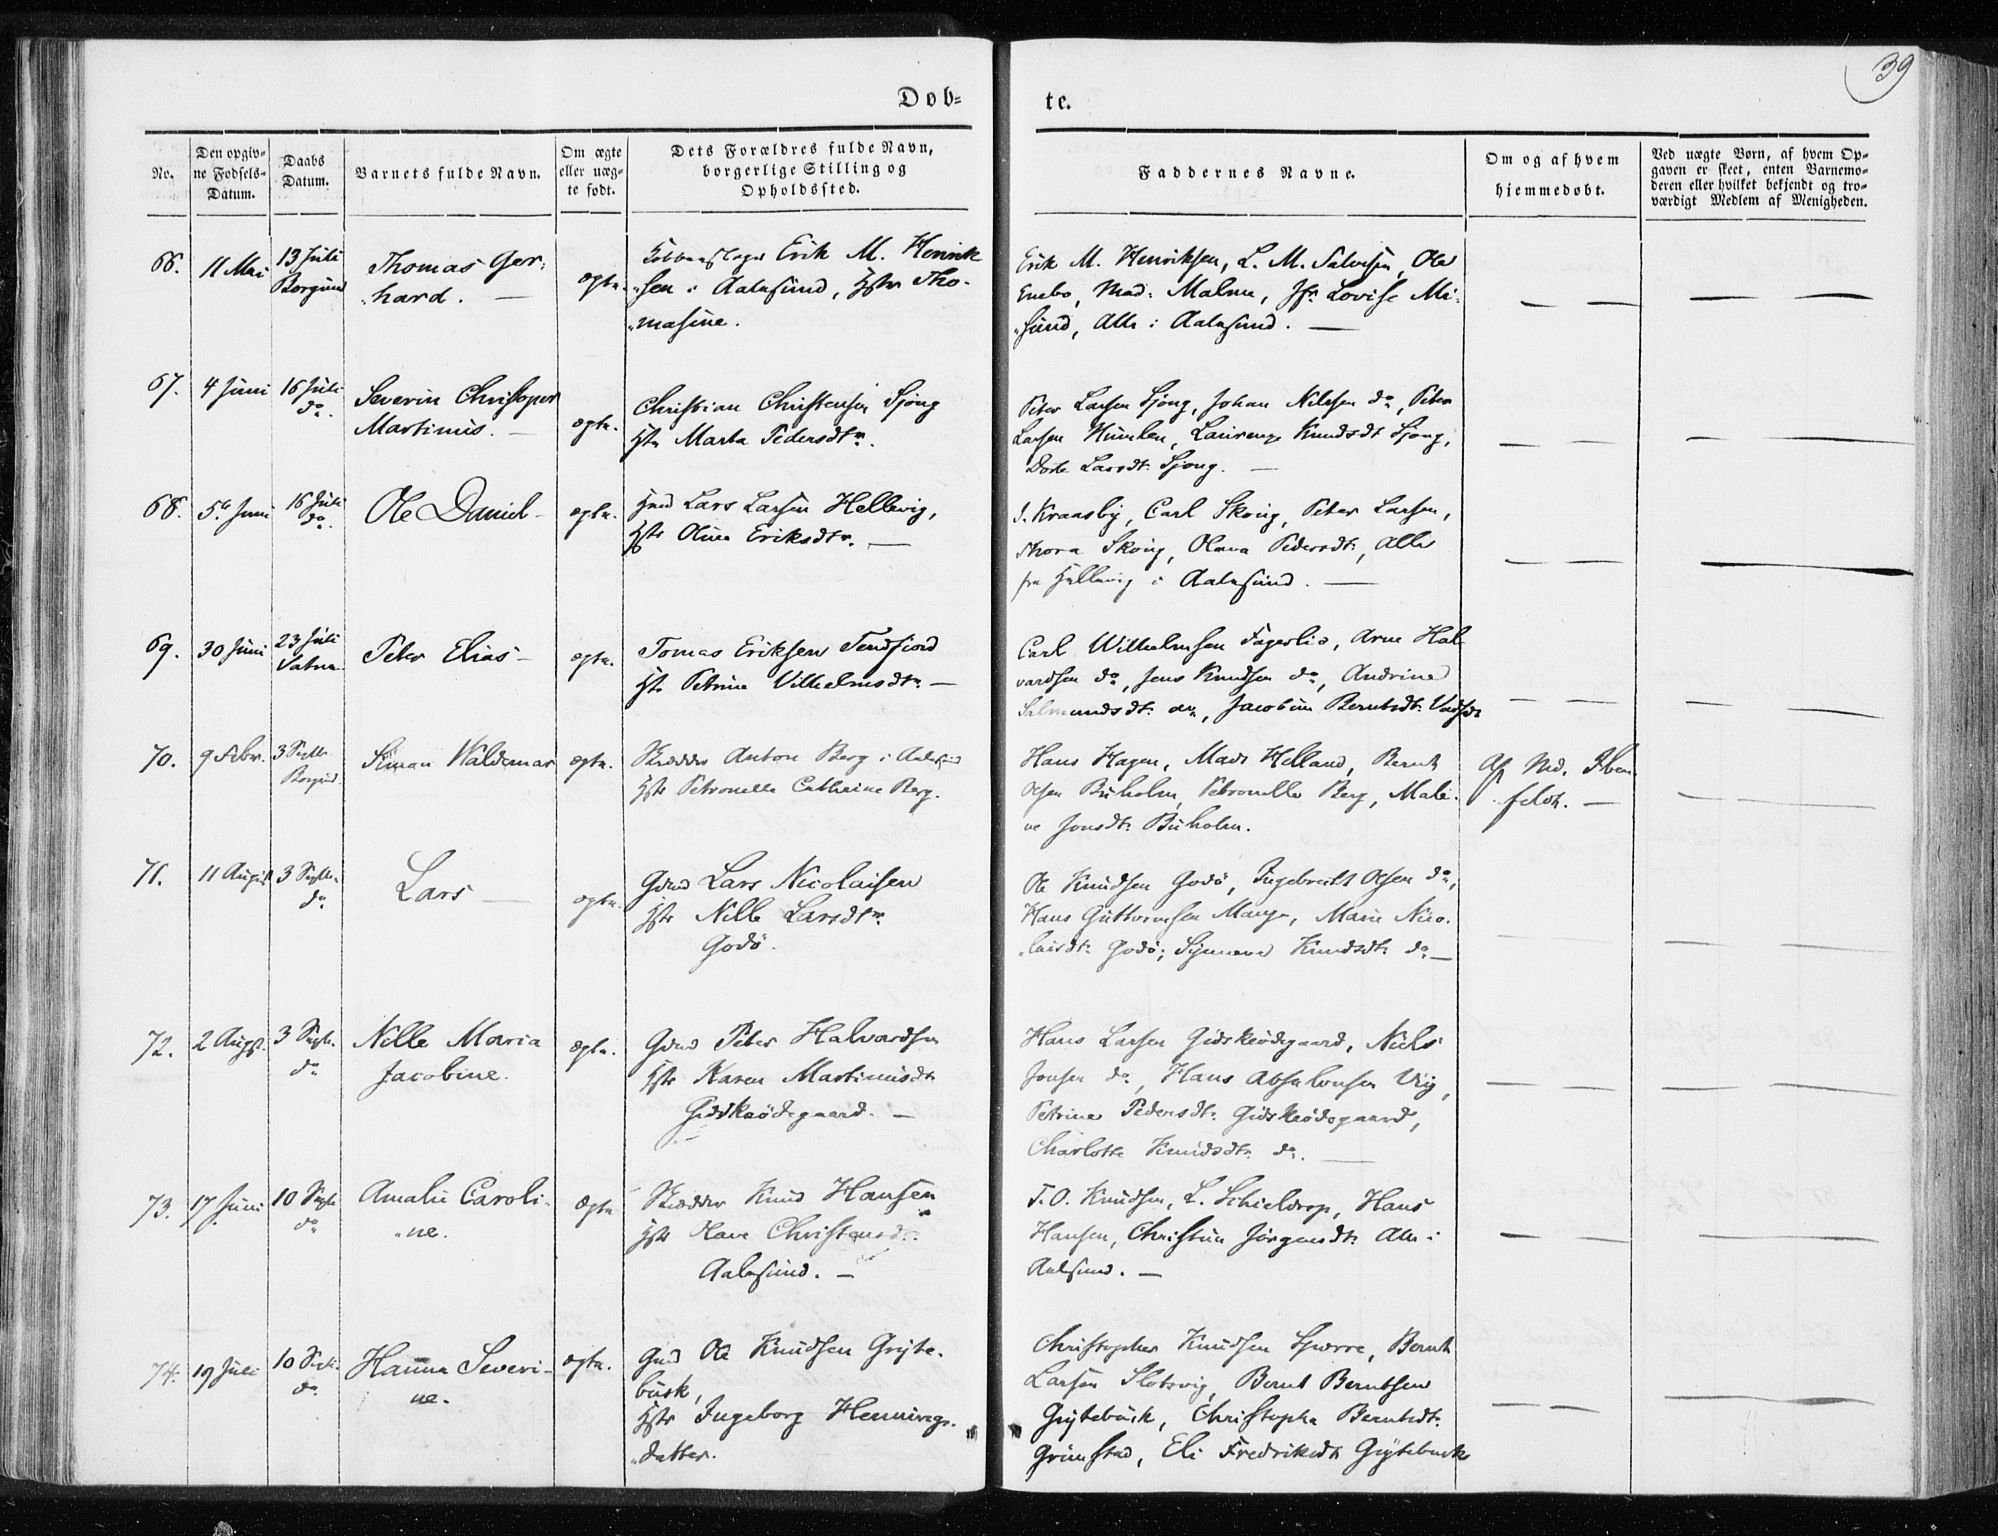 39
Døb=
te.
No.
Den opgiv=
ne Fødsels=
Datum.
Daabs
Datum.
Barnets fulde Navn.
Om ægte
eller uæg=
te født.
Dets Forældres fulde Navn,
borgerlige Stilling og
Opholdssted.
Faddernes Navne.
Om og af hvem
hjemmedøbt.
Ved uægte Børn, af hvem Op=
gaven er skeet, enten Barnemo=
deren eller hvilket bekjendt og tro=
værdigt Medlem af Menigheden.
66.
11 Mai
13 Juli
Borgund
Thomas Ger-
hard. —
ægte.
Erik M. Henrik
sen i Aalesund, Hstr Tho-
masine.
Erik M. Henriksen, L. M. Salvesen, Ole
Enebo, Mad: Malme, Jfr. Lovise Mi-
sund, Alle i Aalesund. —
67.
4 Juni
16 Juli
do.
Severin Christoper
Martinus. —
ægte.
Christian Christensen Sjong
Hstr Marta Pedersdtr.
Peter Larsen Sjong, Johan Nilssen do, Peter
Larsen Humlen, Laurense Knudsdt Sjong,
Dorte Larsdt: Sjong. —
68.
5te Juni
16 Juli
do.
Ole Daniel —
ægte.
Hmd Lars Larsen Hellevig,
Hstr Oline Eriksdtr. —
J. Kraasby, Carl Skong, Peter Larsen,
Thora Skong, Olava Pedersdt:, Alle
fra Hellevig i Aalesund. —
69.
30 Juni
23 Juli
Vatne
Peter Elias —
ægte.
Tomas Eriksen Tendfiord
Hstr Petrine Vilhelmsdtr —
Carl Wilhelmsen Fagerlie, Arne Hal-
vardsen do, Jens Knudsen do, Andrine
Salmundsdt: do, Jacobine Berntsdt:
70.
9 Febr.
3 Septbr
Borgund.
Simon Waldemar
ægte.
Skrædder Anton Berg i Aalesund
Hstr Petronelle Cathrine Berg.
Hans Hagen, Mads Helland, Bernt
Olsen Buholm, Petronelle Berg, Mali-
ne Jonsdt: Buholm.
Af Md. Iben-
feldt. —
71.
11 August
3 Septbr.
do
Lars —
ægte.
Gmd Lars Nicolaisen
Hstr Nille Larsdtr.
Godø.
Ole Knudsen Godø, Ingebrikt Olsen do,
Hans Guttormsen Mauge, Marie Nico-
laisdt: Godø; Synnøve Knudsdt: do —
72.
2 Augst.
3 Septr.
do
Nille Maria
Jacobine.
ægte.
Gmd Peter Halvardsen
Hstr Karen Martinusdt
Gidskeødegaard. —
Hans Larsen Gidskeødegaard, Niels
Jonsen do, Hans Absalonsen Viig,
Petrine Pedersdt: Gidskeødegaard,
Charlotte Knudsdtr do. —
73.
17 Juni
10 Septr
do
Amalie Caroli-
ne.
ægte
Skrædder Knud Hansen
Hstr Olave Christensdt:
Aalesund. —
T. O. Knudsen, L. Schieldrop, Hans
Hansen, Christine Jørgensdt: Alle i
Aalesund. —
74.
19 Juli
10 Septr.
do.
Hanna Severi-
ne.
ægte.
Gmd Ole Knudsen Gryte-
busk,
Hstr Ingeborg Hennings-
datter.
Christopher Knudsen Sperre, Bernt
Larsen Slotsvig, Bernt Berntsen
Grytebusk, Christophe Berntsdt:
Grimstad, Eli Fredriksdt Grytebusk